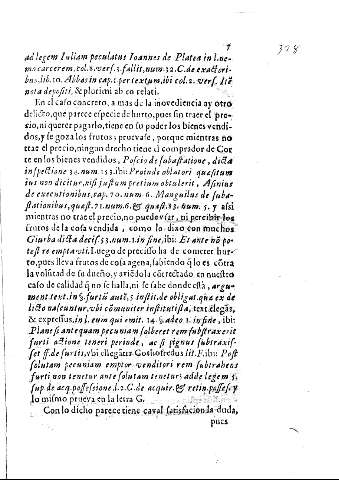 7
378
ad legem Iuliam peculatus Ioannes de Platea in l. ne-
mo carcerem, col. 2. vers. 3. fallit, num. 32. C. de exactori-
bus, lib. 10. Abbas in cap. 1. per textum, ibi col. 2. vers. Ité
nota depositi, & plurimi ab en relati.
En el caso concreto, a mas de la inovediencia ay otro
delicto, que parece especie de hurto, pues sin traer el pre-
sio, ni querer pagarlo, tiene en su poder los bienes vendi-
dos, y se goza los frutos: pruevase, porque mientras no
trae el precio, ningun drecho tiene el comprador de Cor
te en los bienes vendidos, Poscio de subastatione, dicta
inspectione 34. num. 153. ibi: Proinde oblatori quæsitum
ius non dicitur, nisi justum pretium obtulerit, Asinius
de executionibus, cap. 70. num. 6. Mangulius de suba-
stationibus, quæst. 71. num. 6. & quæst. 83. num. 5. y assi
mientras no trae el precio, no puede usar, ni percibir los
frutos de la cosa vendida, como lo dixo con muchos
Giurba dicta decis. 53. num. 1. in fine, ibi: Et ante nō po-
test re empta vti. Luego de precisso ha de cometer hur-
to, pues lleva frutos de cosa agena, sabiendo q̃ lo es cōtra
la volūtad de su dueño, y aviēdo la cōtrectado en nuestro
caso de calidad q̃ no se halla, ni se sabe donde està, argu-
ment. text. in §. furtū autē. 5. instit. de obligat. quæ ex de
licto nascuntur, vbi cōmuniter institutistæ, text. elegās,
& expressus, in l. eum qui emit. 14. §. adeo 1. in fine, ibi:
Plane si antequam pecuniam solberet rem substraxerit
furti actione teneri periode, ac si pignus subtraxis-
set ff. de furtis, vbi ellegāter Gothofredus lit. F. ibi: Post
solutam pecuniam emptor venditori rem subtrahens
furti non tenetur ante solutam tenetur: adde legem 5.
sup de acq. possessione. l. 2. C. de acquir. & retin. posses. y
lo mismo prueva en la letra G.
Con lo dicho parece tiene caval satisfacion la duda,
pues